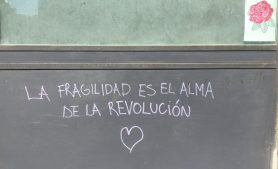 LA FRAGILIDAD ES EL ALMA
DE LA REVOLUCIÓN